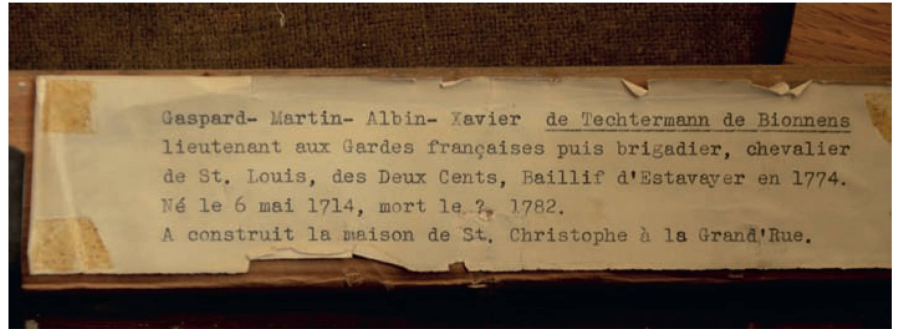 Gaspard- Martin- Albin- Xavier de Techtermann de Bionnens
lieutenant aux Gardes françaises puis brigadier, chevalier
de St. Louis, des Deux Cents, Baillif d'Estavayer en 1774.
Né le 6 mai 1714, mort le ?. 1782.
A construit la maison de St. Christophe à la Grand'Rue.